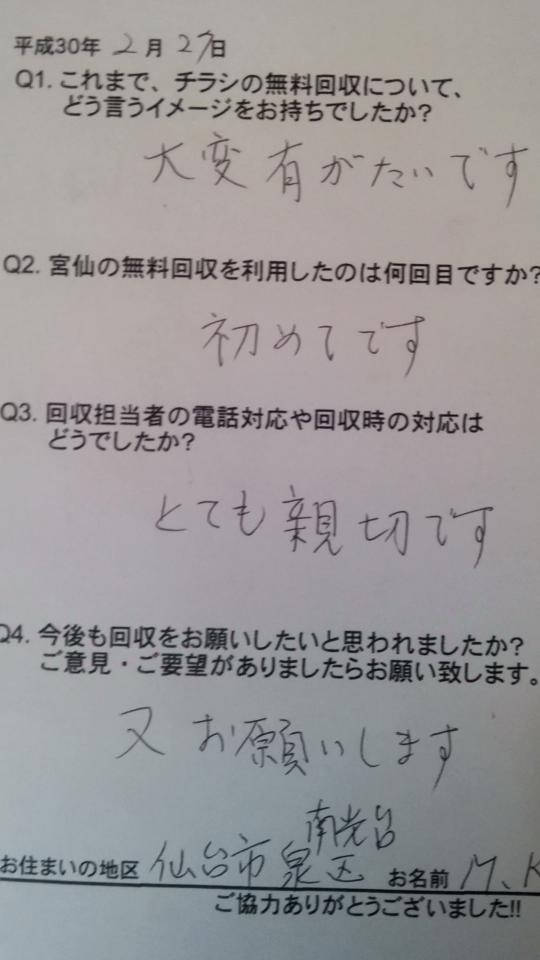 平成30年 2月 27日
Q1. これまで、チラシの無料回収について、
どう言うイメージをお持ちでしたか?
大変有がたいです
Q2. 宮仙の無料回収を利用したのは何回目ですか?
初めてです
Q3. 回収担当者の電話対応や回収時の対応は
どうでしたか?
とても親切です
Q4. 今後も回収をお願いしたいと思われましたか?
ご意見・ご要望がありましたらお願い致します。
又お願いします
南光台
お住まいの地区 仙台市泉区 お名前 M、K
ご協力ありがとうございました!!